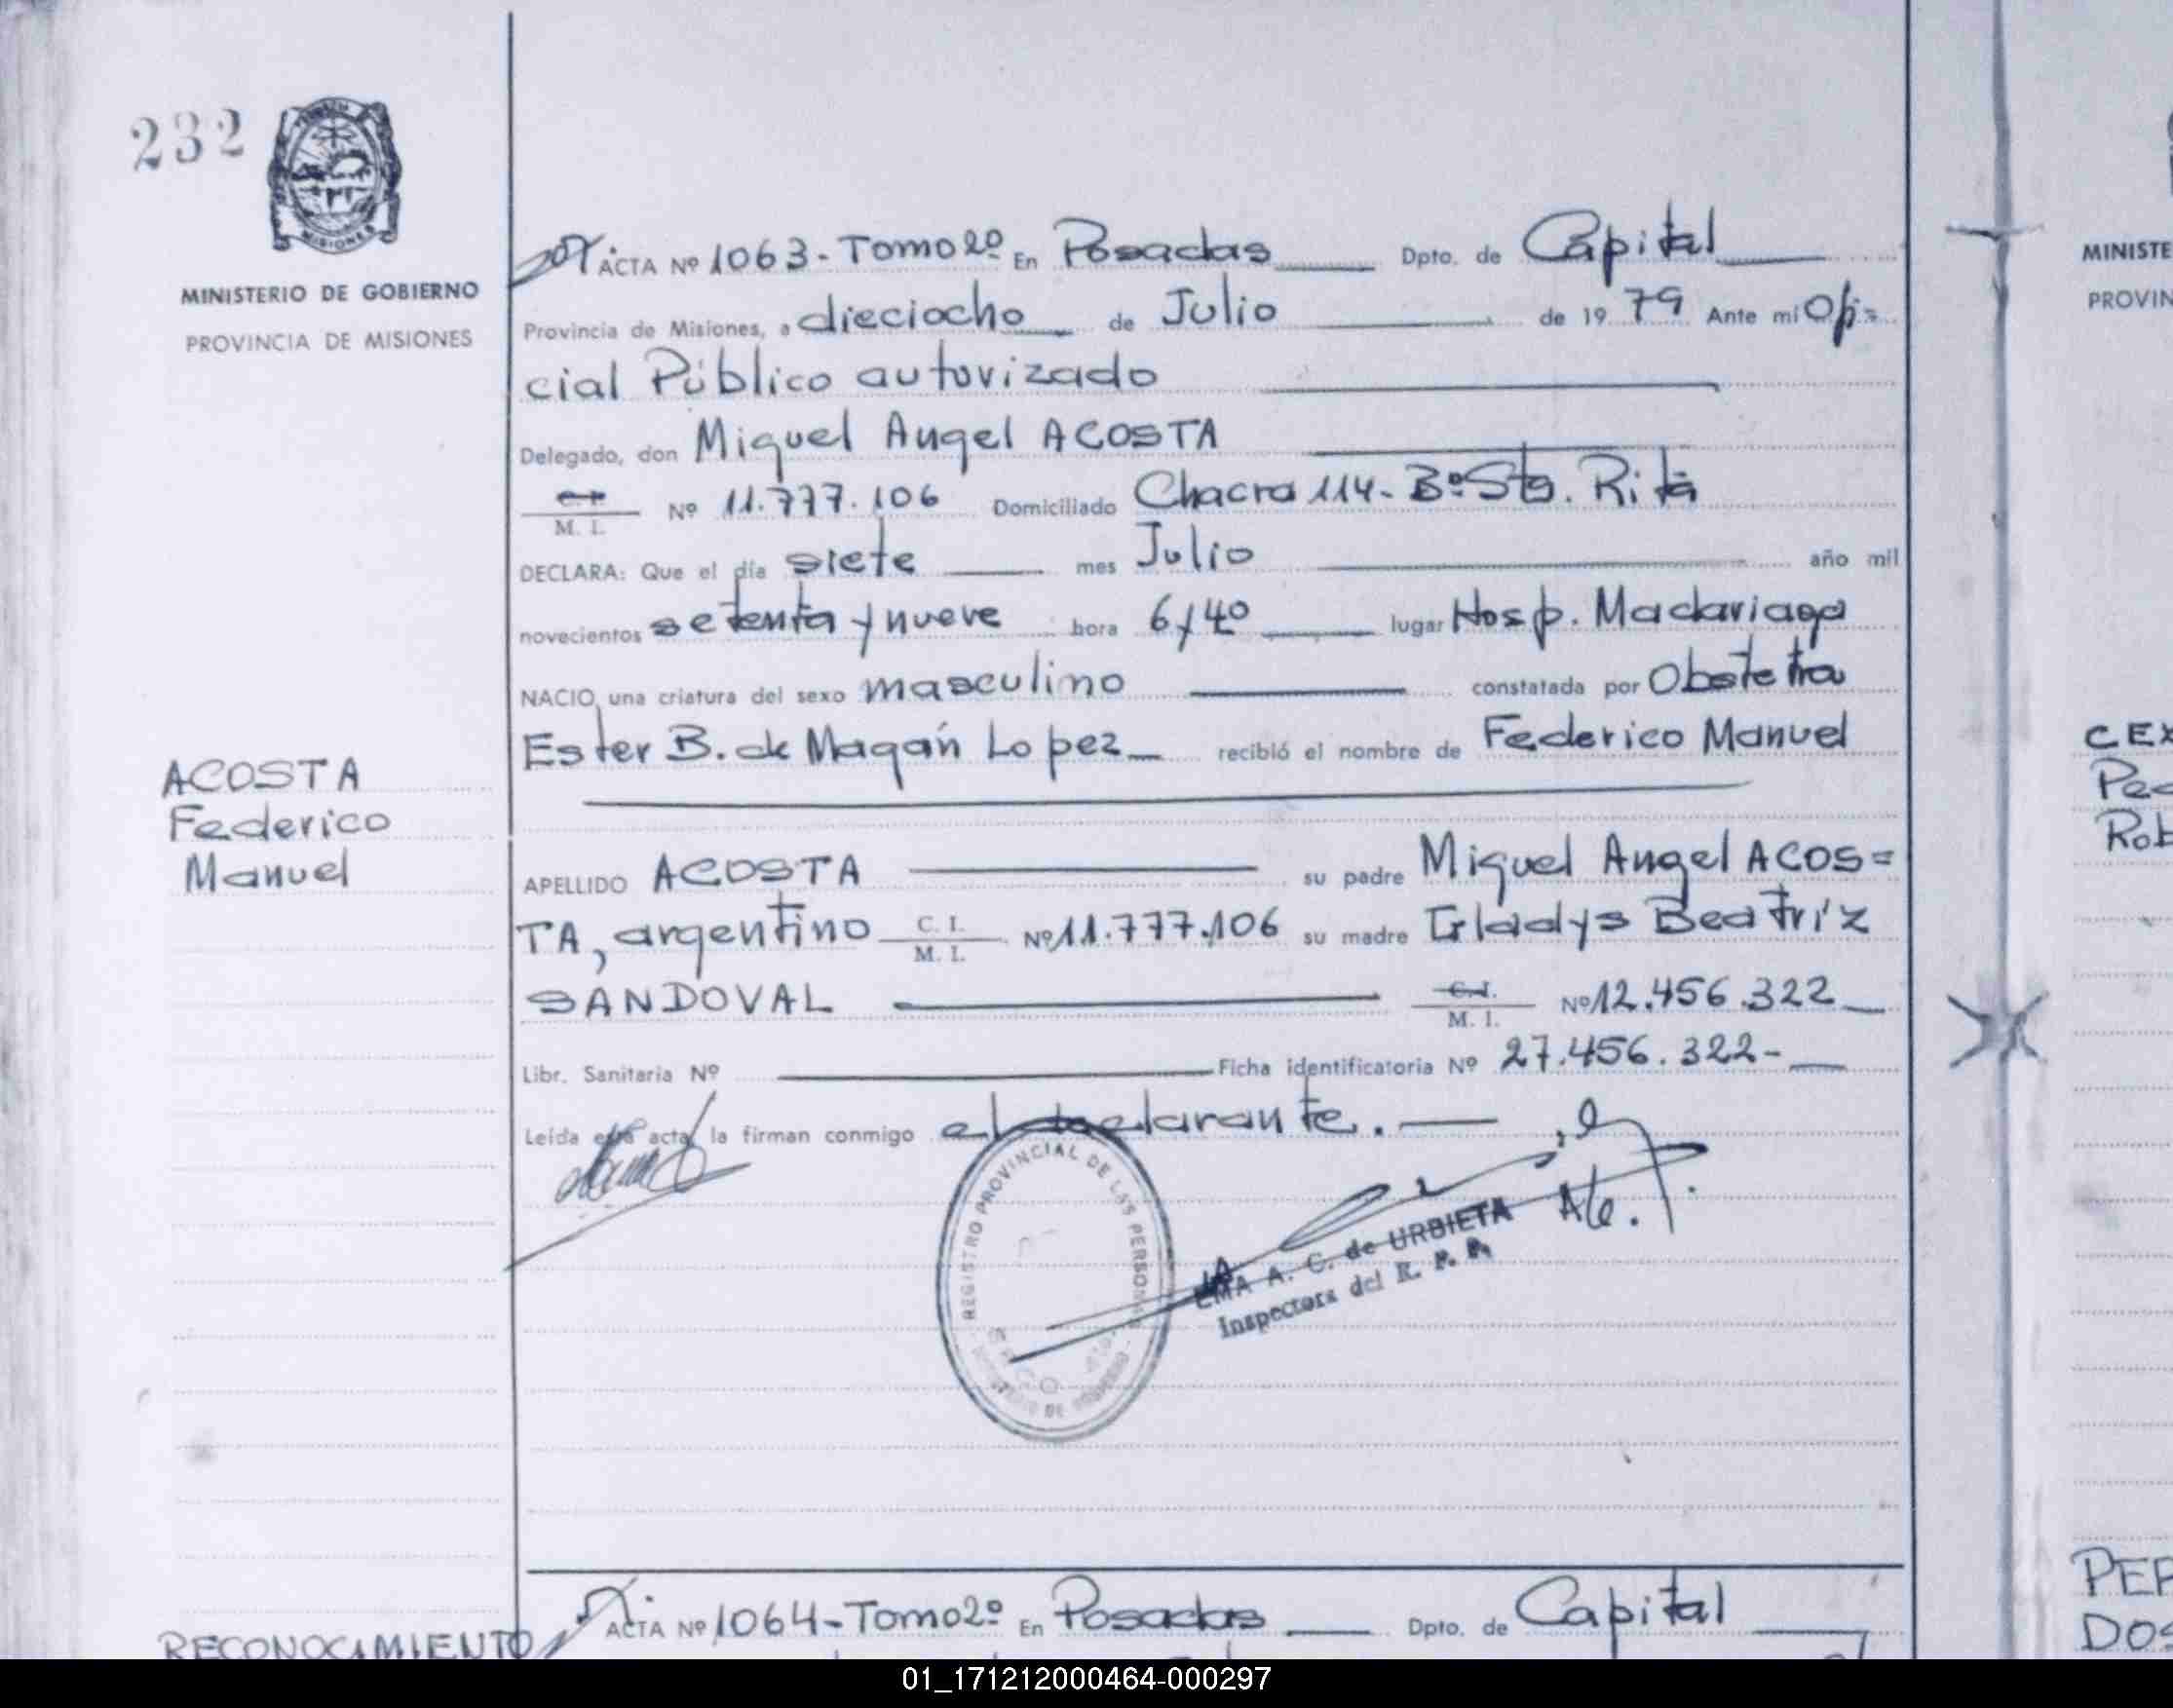 232
MISIONES
MINISTERIO DE GOBIERNO
PROVINCIA DE MISIONES
ACTA Nº 1063 - Tomo 2º En Posadas Dpto. de Capital
Provincia de Misiones, a dieciocho de Julio de 1979 Ante mi Ofi=
cial Público autorizado
Delegado, don Miguel Angel ACOSTA
M. I. Nº 11.777.106 Domiciliado Chacra 114 - Bº Sta. Rita
DECLARA: Que el día siete mes Julio año mil
novecientos setenta y nueve hora 6/40 lugar Hosp. Madariaga
NACIO una criatura del sexo masculino constatada por Obstetra
Ester B. de Magán Lopez recibió el nombre de Federico Manuel
ACOSTA
Federico
Manuel
APELLIDO ACOSTA su padre Miguel Angel ACOS=
TA, argentino C. I. M. I. Nº 11.777.106 su madre Gladys Beatriz
SANDOVAL C.I. M. I. Nº 12.456.322
Libr. Sanitaria Nº Ficha identificatoria Nº 27.456.322-
Leída esta acta la firman conmigo el declarante.
REGISTRO PROVINCIAL DE LAS PERSONAS
EMA A. C. de URBIETA
Inspectora del R. P. P.
ACTA Nº 1064 - Tomo 2º En Posadas Dpto. de Capital
RECONOCIMIENTO
MINISTE
PROVIN
CEX
Pec
Rob
PER
DOS
01_171212000464-000297